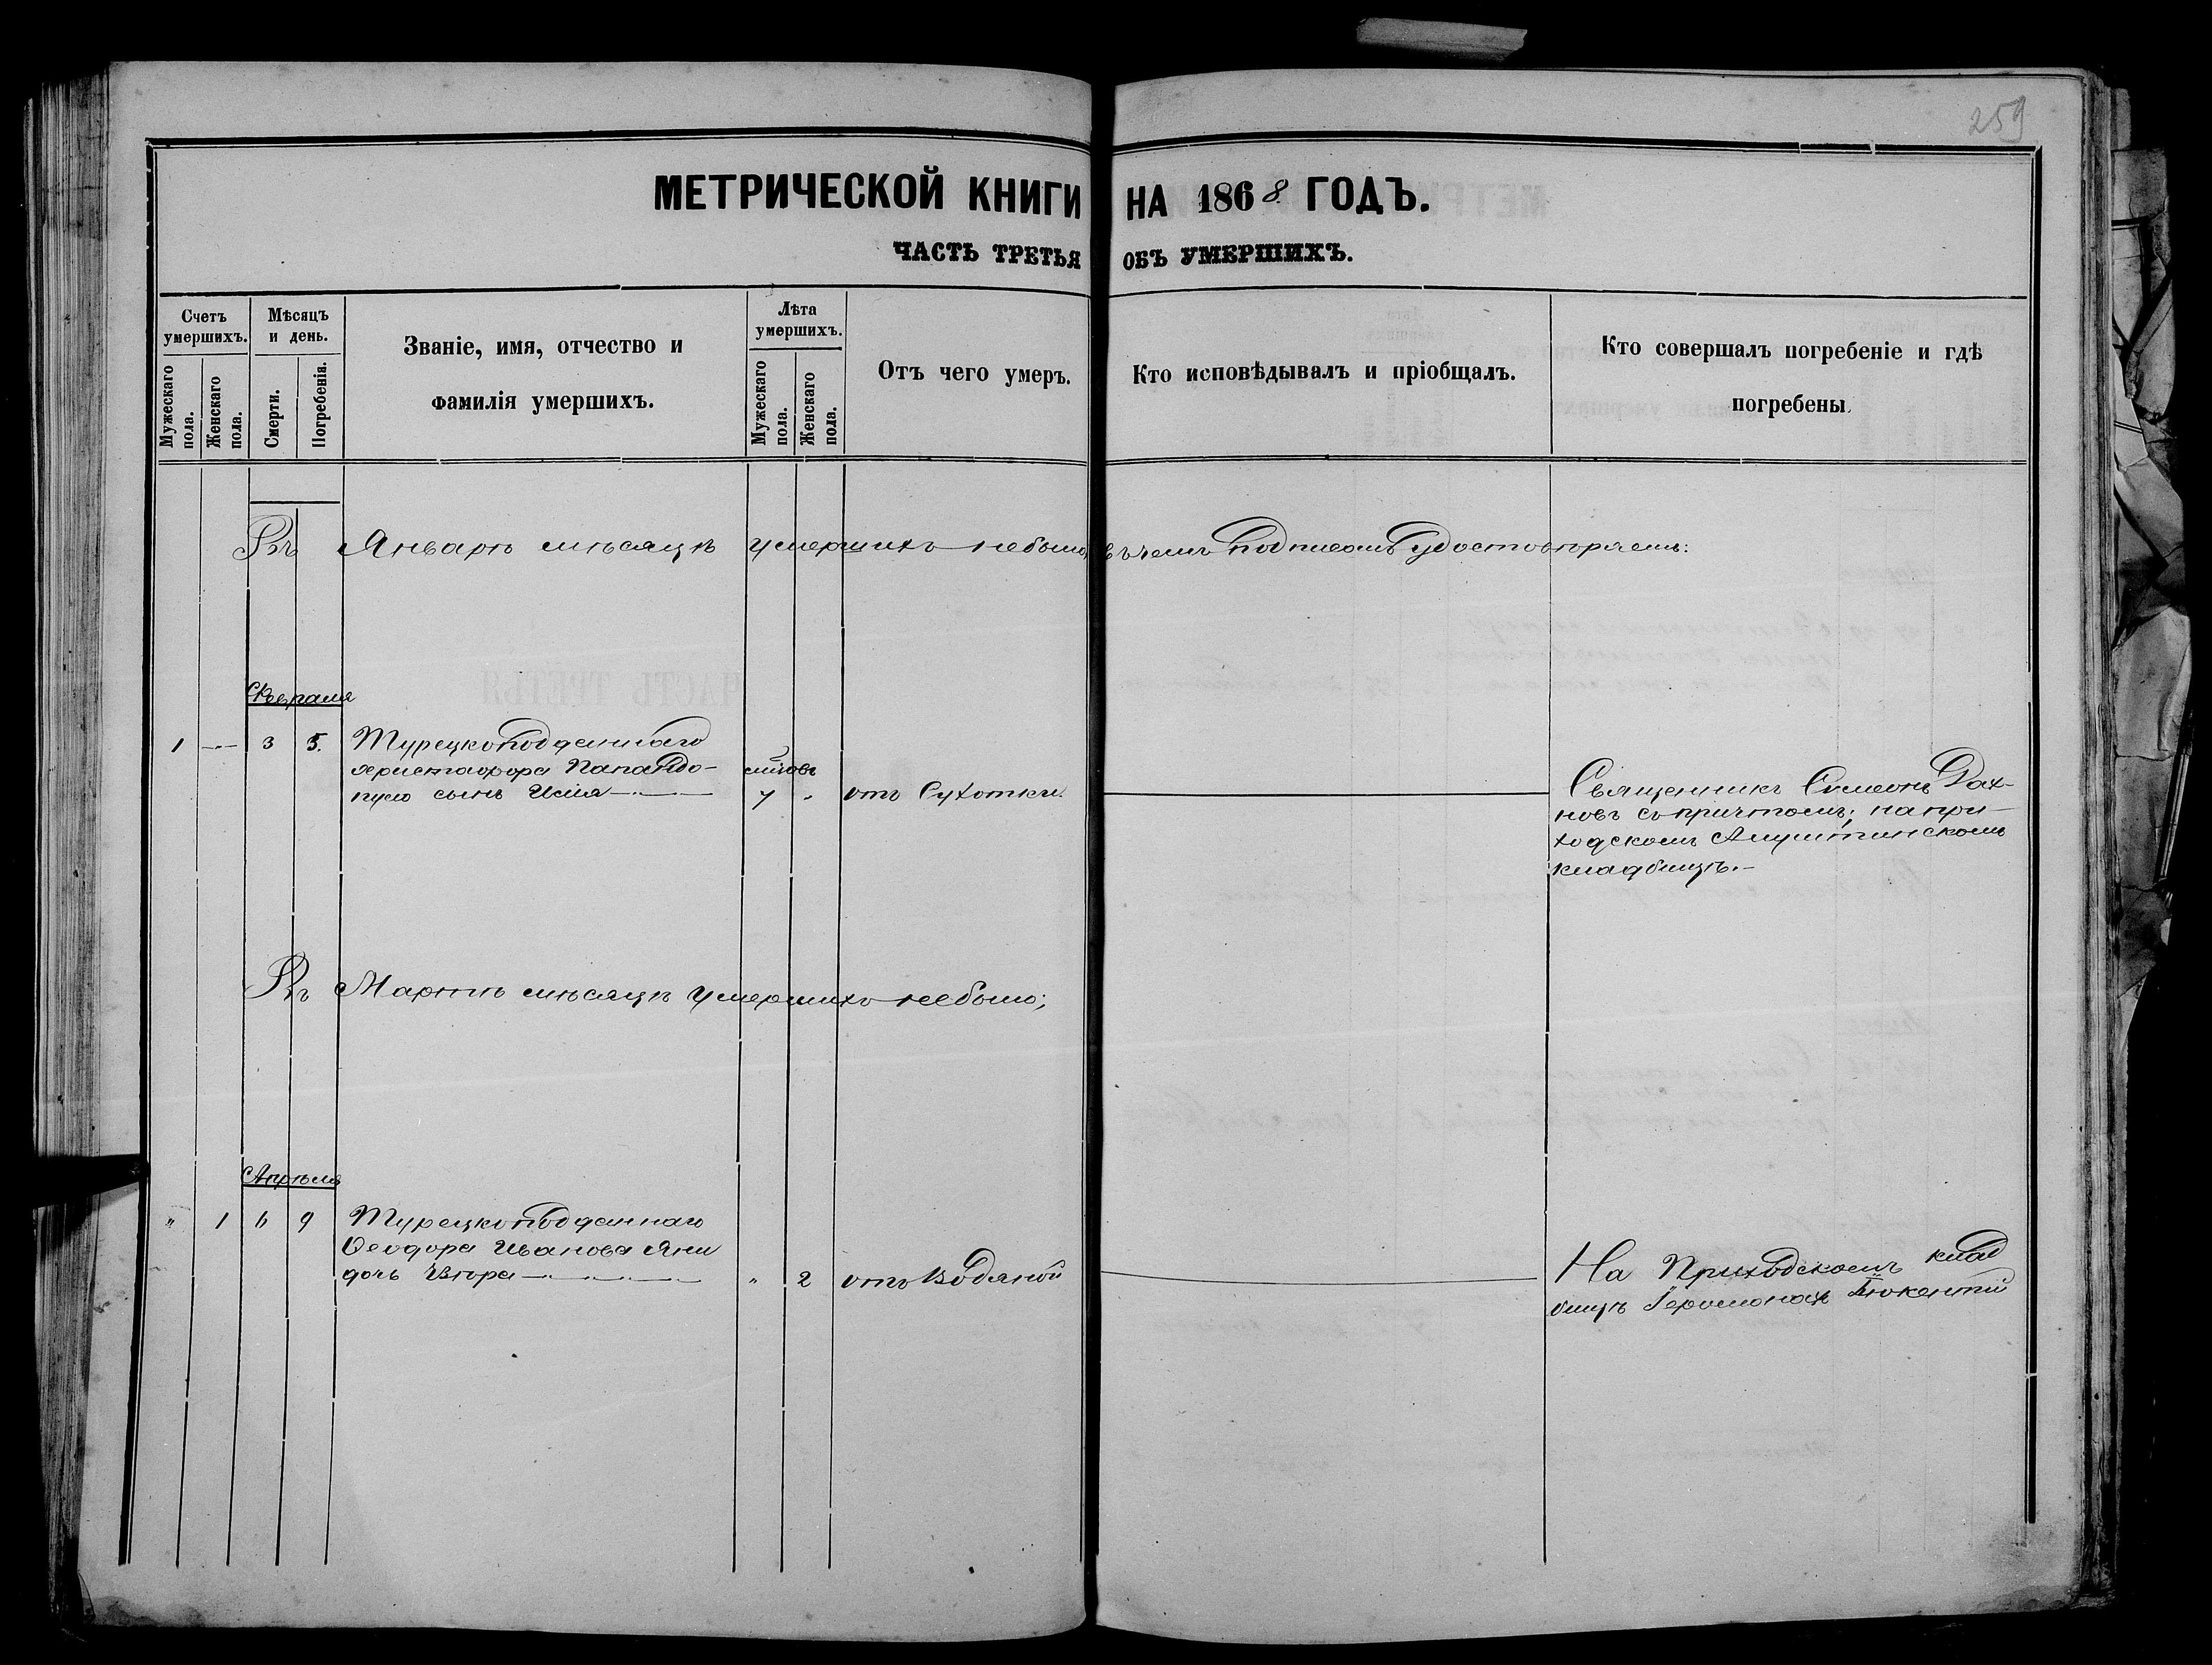 259
МЕТРИЧЕСКОЙ КНИГИ НА 1868 ГОДЪ.
ЧАСТЬ ТРЕТЬЯ ОБЪ УМЕРШИХЪ.
Счетъ умершихъ.
Мужескаго пола.
Женскаго пола.
Мѣсяцъ и день.
Смерти.
Погребенія.
Званіе, имя, отчество и
фамилія умершихъ.
Лѣта умершихъ.
Мужескаго пола.
Женскаго пола.
Отъ чего умеръ.
Кто исповѣдывалъ и пріобщалъ.
Кто совершалъ погребеніе и гдѣ
погребены.
Въ Январѣ мѣсяцѣ умершихъ небыло, въ чемъ подписомъ удостовѣряемъ:
Февраля
1 — 3 5. Турецкоподданнаго
Христофора Папандо-
пуло сынъ Илія
7 " отъ Сухотки.
Священникъ Симеонъ
новъ съ причтомъ; на при-
ходскомъ Алуштинскомъ
кладбищѣ.-
Въ Мартѣ мѣсяцѣ умершихъ небыло;
Апрѣля
" 1 6 9 Турецкоподданнаго
Ѳеодора Иванова Яни
дочь
" 2 отъ Водяной
На Приходскомъ клад
бищѣ Іеромонахъ